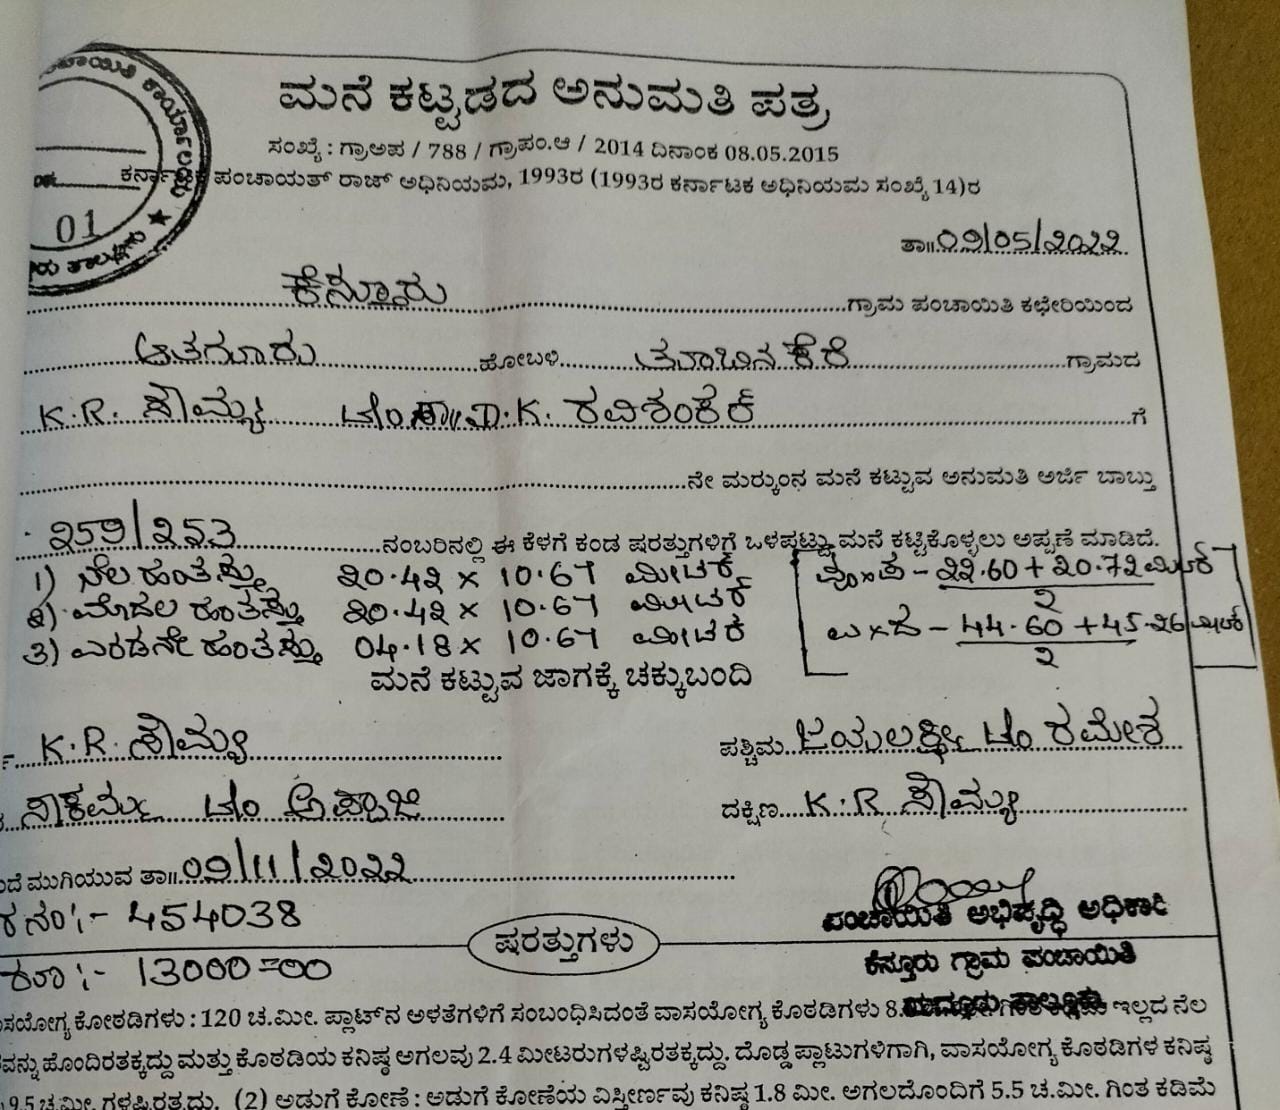 ಪಂಚಾಯಿತಿ ಕಾರ್ಯಾಲಯ ★
01
ಮನೆ ಕಟ್ಟಡದ ಅನುಮತಿ ಪತ್ರ
ಸಂಖ್ಯೆ : ಗ್ರಾಅಪ / 788 / ಗ್ರಾಪಂ.ಆ / 2014 ದಿನಾಂಕ 08.05.2015
ಕರ್ನಾಟಕ ಪಂಚಾಯತ್ ರಾಜ್ ಅಧಿನಿಯಮ, 1993ರ (1993ರ ಕರ್ನಾಟಕ ಅಧಿನಿಯಮ ಸಂಖ್ಯೆ 14)ರ
ತಾ॥ ೦೨/೦೫/೨೦೨೨
ಕೆಸ್ತೂರು ಗ್ರಾಮ ಪಂಚಾಯಿತಿ ಕಛೇರಿಯಿಂದ
ಆತಗೂರು ಹೋಬಳಿ ತೂಬಿನಕೆರೆ ಗ್ರಾಮದ
K.R. ಸೌಮ್ಯ K. ರವಿಶಂಕರ್ ಗೆ
ನೇ ಮರ್‍ಕುಂನ ಮನೆ ಕಟ್ಟುವ ಅನುಮತಿ ಅರ್ಜಿ ಬಾಬ್ತು
೨೫೨/೨೨೩ ನಂಬರಿನಲ್ಲಿ ಈ ಕೆಳಗೆ ಕಂಡ ಷರತ್ತುಗಳಿಗೆ ಒಳಪಟ್ಟು ಮನೆ ಕಟ್ಟಿಕೊಳ್ಳಲು ಅಪ್ಪಣೆ ಮಾಡಿದೆ.
1) ನೆಲ ಹಂತಸ್ತು ೨೦.4೨ x 10.67 ಮೀಟರ್ ಪೂ x ಪ - ೨೨.60 + ೨೦.72 ಮೀಟರ್ / 2
೨) ಮೊದಲ ಹಂತಸ್ತು ೨೦.4೨ x 10.67 ಮೀಟರ್ ಉ x ದ - 44.60 + 45.26 ಮೀಟರ್ / 2
3) ಎರಡನೇ ಹಂತಸ್ತು 04.18 x 10.67 ಮೀಟರ್
ಮನೆ ಕಟ್ಟುವ ಜಾಗಕ್ಕೆ ಚಕ್ಕುಬಂದಿ
K.R. ಸೌಮ್ಯ ಪಶ್ಚಿಮ ಜಯಲಕ್ಷ್ಮೀ ಕೋಂ ರಮೇಶ
ಕೋಂ ಅಪ್ಪಾಜಿ ದಕ್ಷಿಣ K.R ಸೌಮ್ಯ
ಮುಗಿಯುವ ತಾ॥ ೦೨/11/೨೦೨೨
ರ ನಂ:- 454038
ಪಂಚಾಯಿತಿ ಅಭಿವೃದ್ಧಿ ಅಧಿಕಾರಿ
ಷರತ್ತುಗಳು
ಕೆಸ್ತೂರು ಗ್ರಾಮ ಪಂಚಾಯಿತಿ
ರೂ:- 13000=00
ಮದ್ದೂರು ತಾಲ್ಲೂಕು
ಸಯೋಗ್ಯ ಕೋಠಡಿಗಳು : 120 ಚ.ಮೀ. ಪ್ಲಾಟ್‌ನ ಅಳತೆಗಳಿಗೆ ಸಂಬಂಧಿಸಿದಂತೆ ವಾಸಯೋಗ್ಯ ಕೊಠಡಿಗಳು ಇಲ್ಲದ ನೆಲ
ವನ್ನು ಹೊಂದಿರತಕ್ಕದ್ದು ಮತ್ತು ಕೊಠಡಿಯ ಕನಿಷ್ಠ ಅಗಲವು 2.4 ಮೀಟರುಗಳಷ್ಟಿರತಕ್ಕದ್ದು. ದೊಡ್ಡ ಪ್ಲಾಟುಗಳಿಗಾಗಿ, ವಾಸಯೋಗ್ಯ ಕೊಠಡಿಗಳ ಕನಿಷ್ಠ
9.5 ಚ.ಮೀ. ಗಳಷ್ಟಿರತಕ್ಕದ್ದು. (2) ಅಡುಗೆ ಕೋಣೆ : ಅಡುಗೆ ಕೋಣೆಯ ವಿಸ್ತೀರ್ಣವು ಕನಿಷ್ಠ 1.8 ಮೀ. ಅಗಲದೊಂದಿಗೆ 5.5 ಚ.ಮೀ. ಗಿಂತ ಕಡಿಮೆ